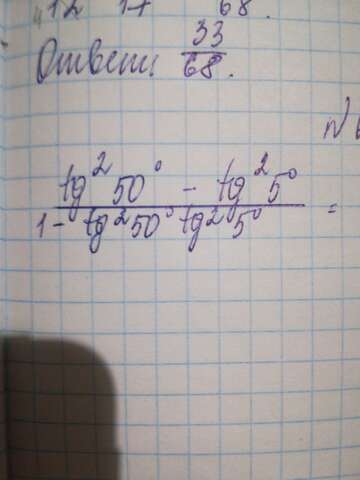 12 17 68.
Ответ: 33/68.
N
tg² 50° - tg² 5°
1 - tg² 50° tg² 5° =